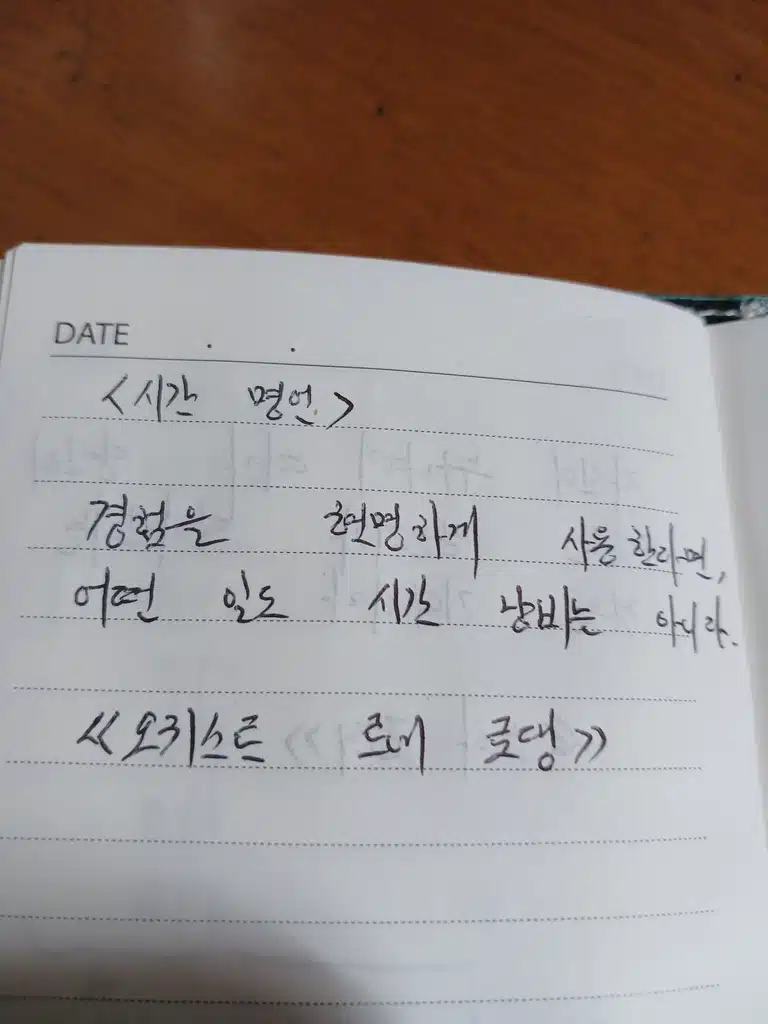 DATE . .
<시간 명언>
경험을 현명하게 사용한다면,
어떤 일도 시간 낭비는 아니다.
《오귀스트 르네 로댕》